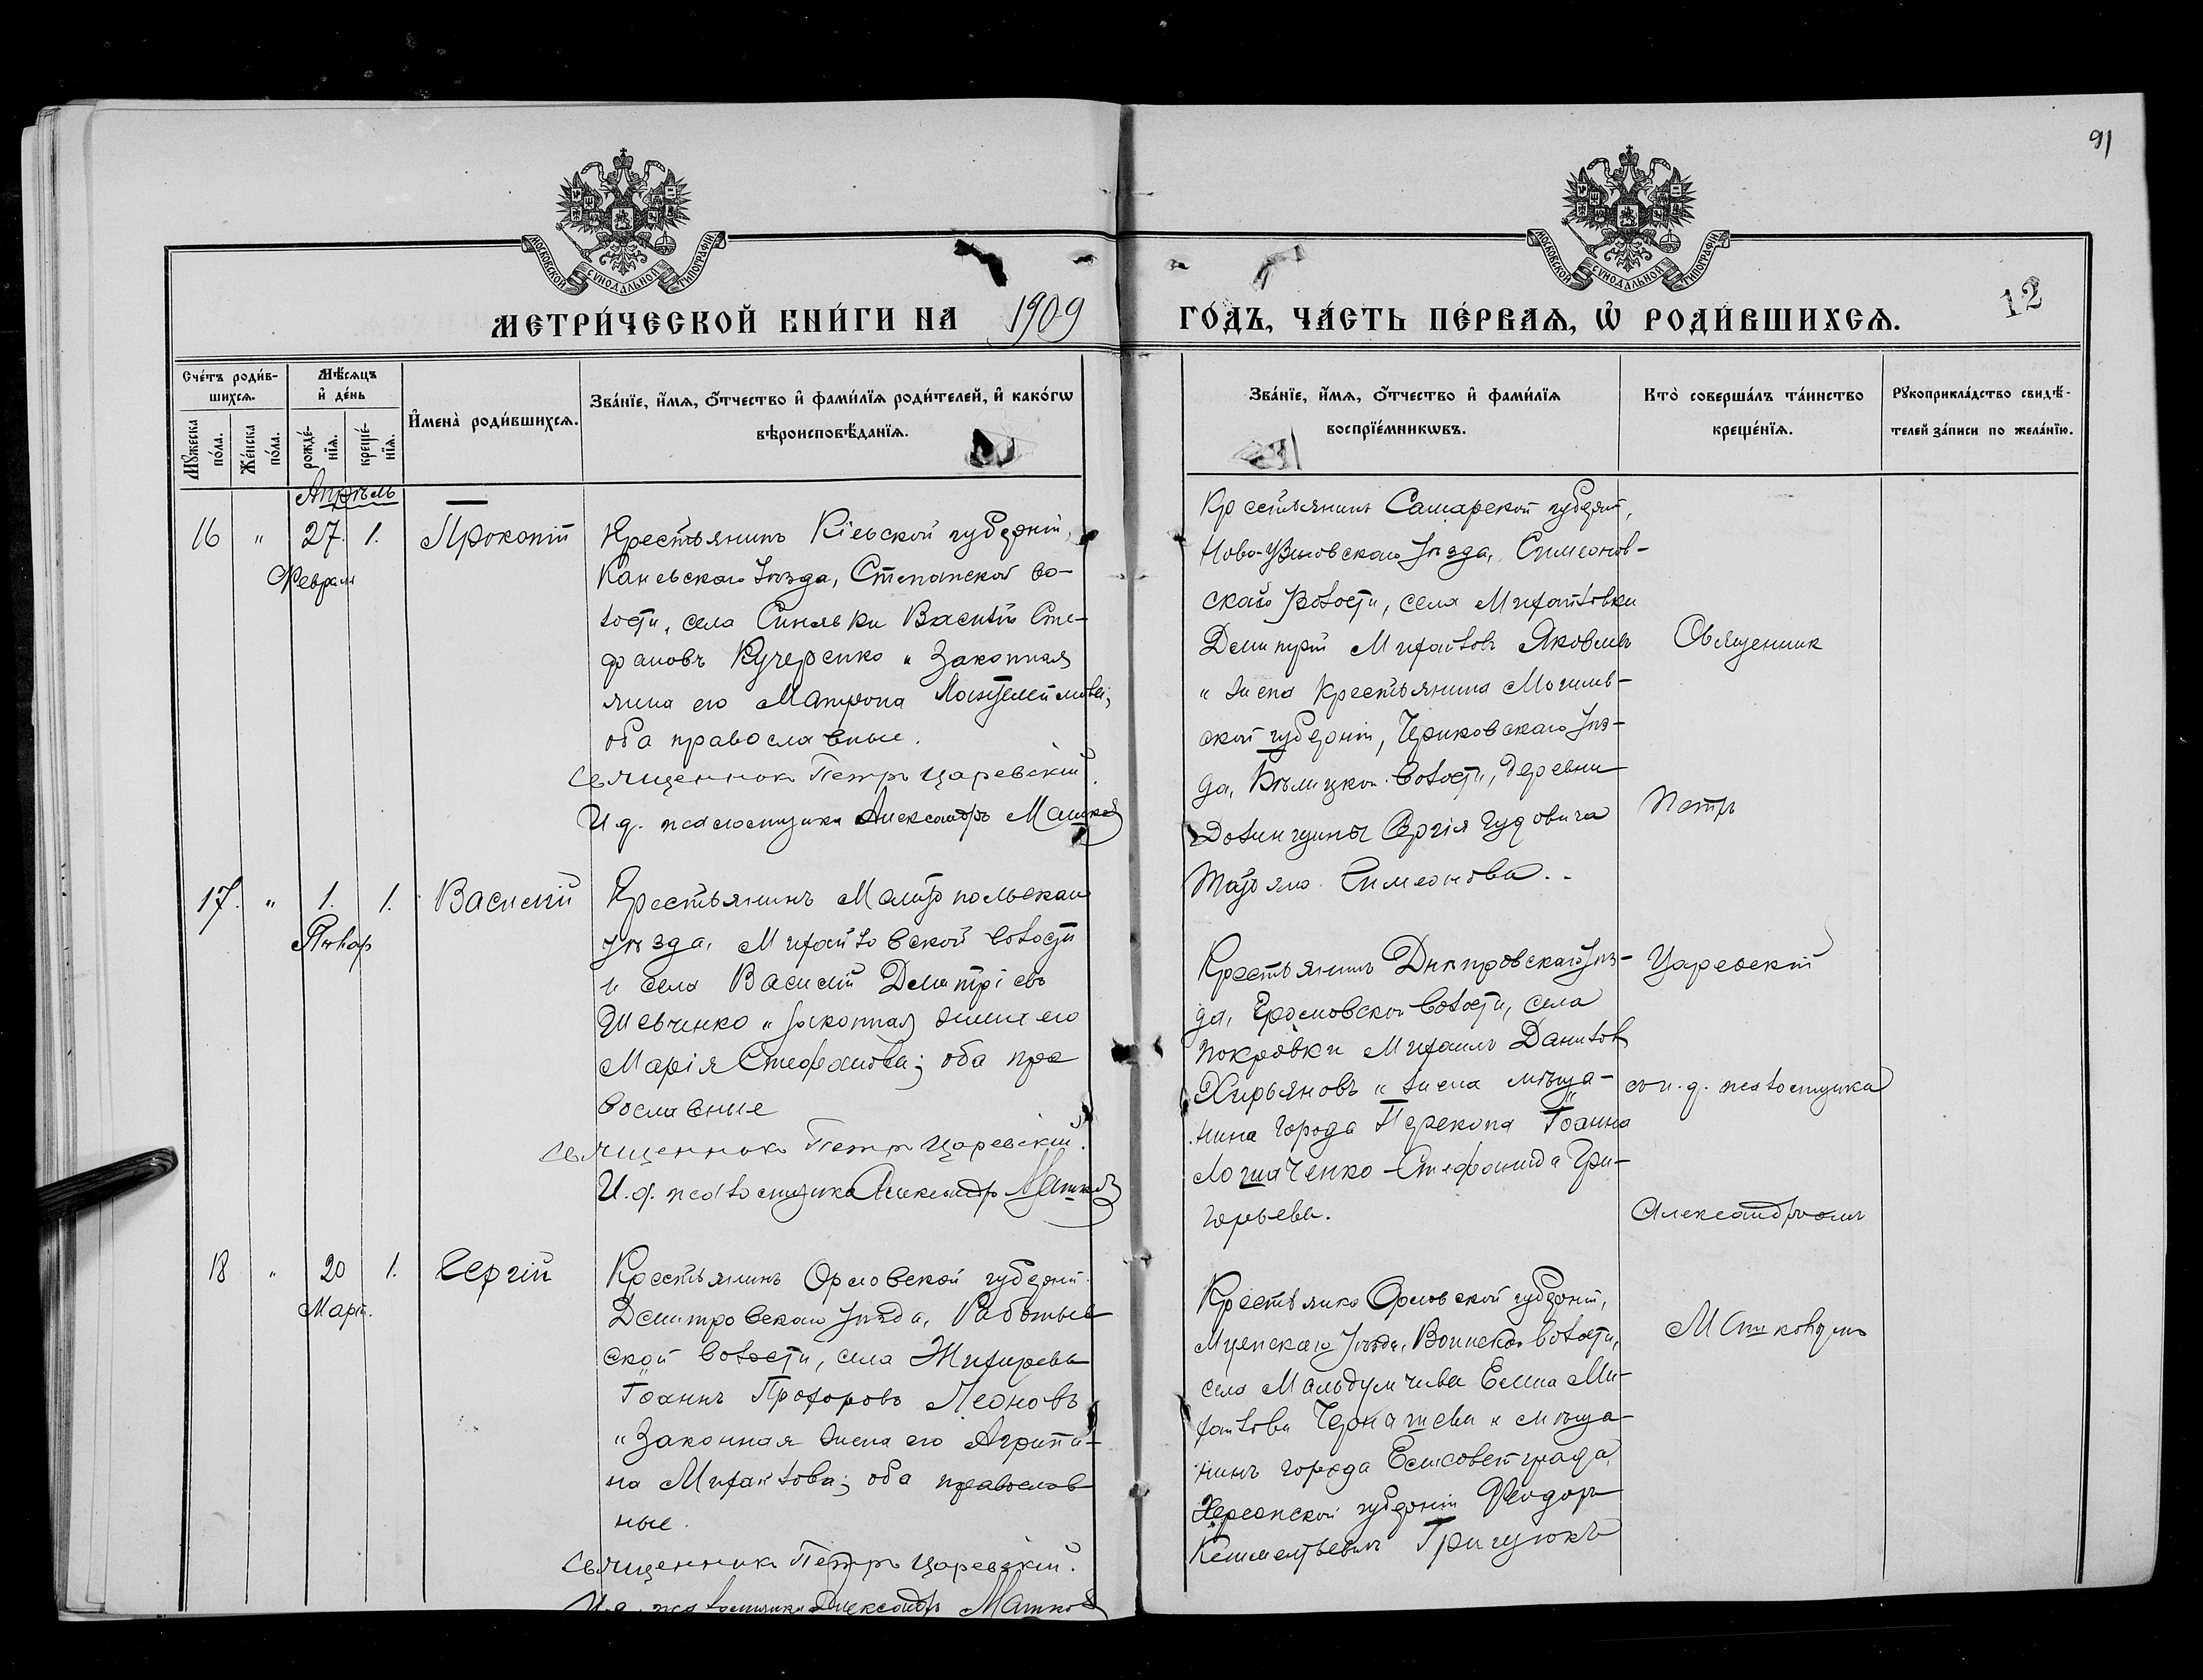 91
МОСКОВСКОЙ СУНОДАЛЬНОЙ ТИПОГРАФІИ
МОСКОВСКОЙ СУНОДАЛЬНОЙ ТИПОГРАФІИ
МЕТРИ́ЧЕСКОЙ КНИ́ГИ НА 1909
ГО́ДЪ, ЧА́СТЬ ПЕ́РВАЯ, Ѡ РОДИ́ВШИХСЯ.
12
Сче́тъ роди́в-
шихся.
Мѣ́сяцъ
и де́нь
Мꙋ́жеска
по́ла.
Же́нска
по́ла.
рожде́-
нїя.
креще́-
нїя.
Имена̀ роди́вшихся.
Зва́нїе, и́мя, о́тчество и фами́лїя роди́телей, и како́гѡ
вѣроисповѣ́данїя.
Зва́нїе, и́мя, о́тчество и фами́лїя
воспрїе́мникѡвъ.
Кто̀ соверша́лъ та́инство
креще́нїя.
Рꙋкоприкла́дство свидѣ́-
телей за́писи по жела́нїю.
Апрѣль
16 " 27. 1. Прокопій
Февраля
Крестьянинъ Кіевской губерніи,
Каневскаго уѣзда, Степанской во-
лости, села Синявки Василій Сте-
фановъ Кучеренко и законная
жена его Матрона
оба православные.
Священникъ Петръ Царевскій.
И. д. псаломщика Александръ Машков
Крестьянинъ Самарской губерніи,
Ново-Узеновскаго уѣзда, Симеонов-
скаго волости, села Михайловки
Димитрій Михайловъ Яковлевъ
и жена крестьянина Могилев-
ской губерніи, Чериковскаго уѣз-
да, волости, деревни
Сергія Гудовича
Симеонова.
Священник
Петръ
17. " 1. 1. Василій
Январ
Крестьянинъ Мелитопольскаго
уѣзда, Михайловской волости
и села Василій Димитріевъ
Шевченко и законная жена его
Марія Стефанова; оба пра
вославные
Священникъ Петръ Царевскій.
И. д. псаломщика Александръ Машков
Крестьянинъ Днѣпровскаго уѣз-
да, волости, села
Покровки Михаилъ Данилов
Хирьяновъ и жена мѣща-
нина города Перекопа Іоанна
Логаченко - Стефанида Гри-
горьева.
Царевскій
съ и. д. псаломщика
Александромъ
18 " 20 1. Сергій
Март.
Крестьянинъ Орловской губерніи
Димитровскаго уѣзда,
ской волости, села Жихарева
Іоаннъ Прохоровъ Леоновъ
и законная жена его Агрипи-
на Михайлова; оба православ
ные.
Священникъ Петръ Царевскій.
И. д. псаломщика Александръ Машков
Крестьянка Орловской губерніи,
Мценскаго уѣзда, Воинской волости,
села Елена Ми-
хайлова и мѣща-
нинъ города Елисаветграда,
Херсонской губерніи Феодоръ
Климентьевичъ Григуюкъ
Машковымъ